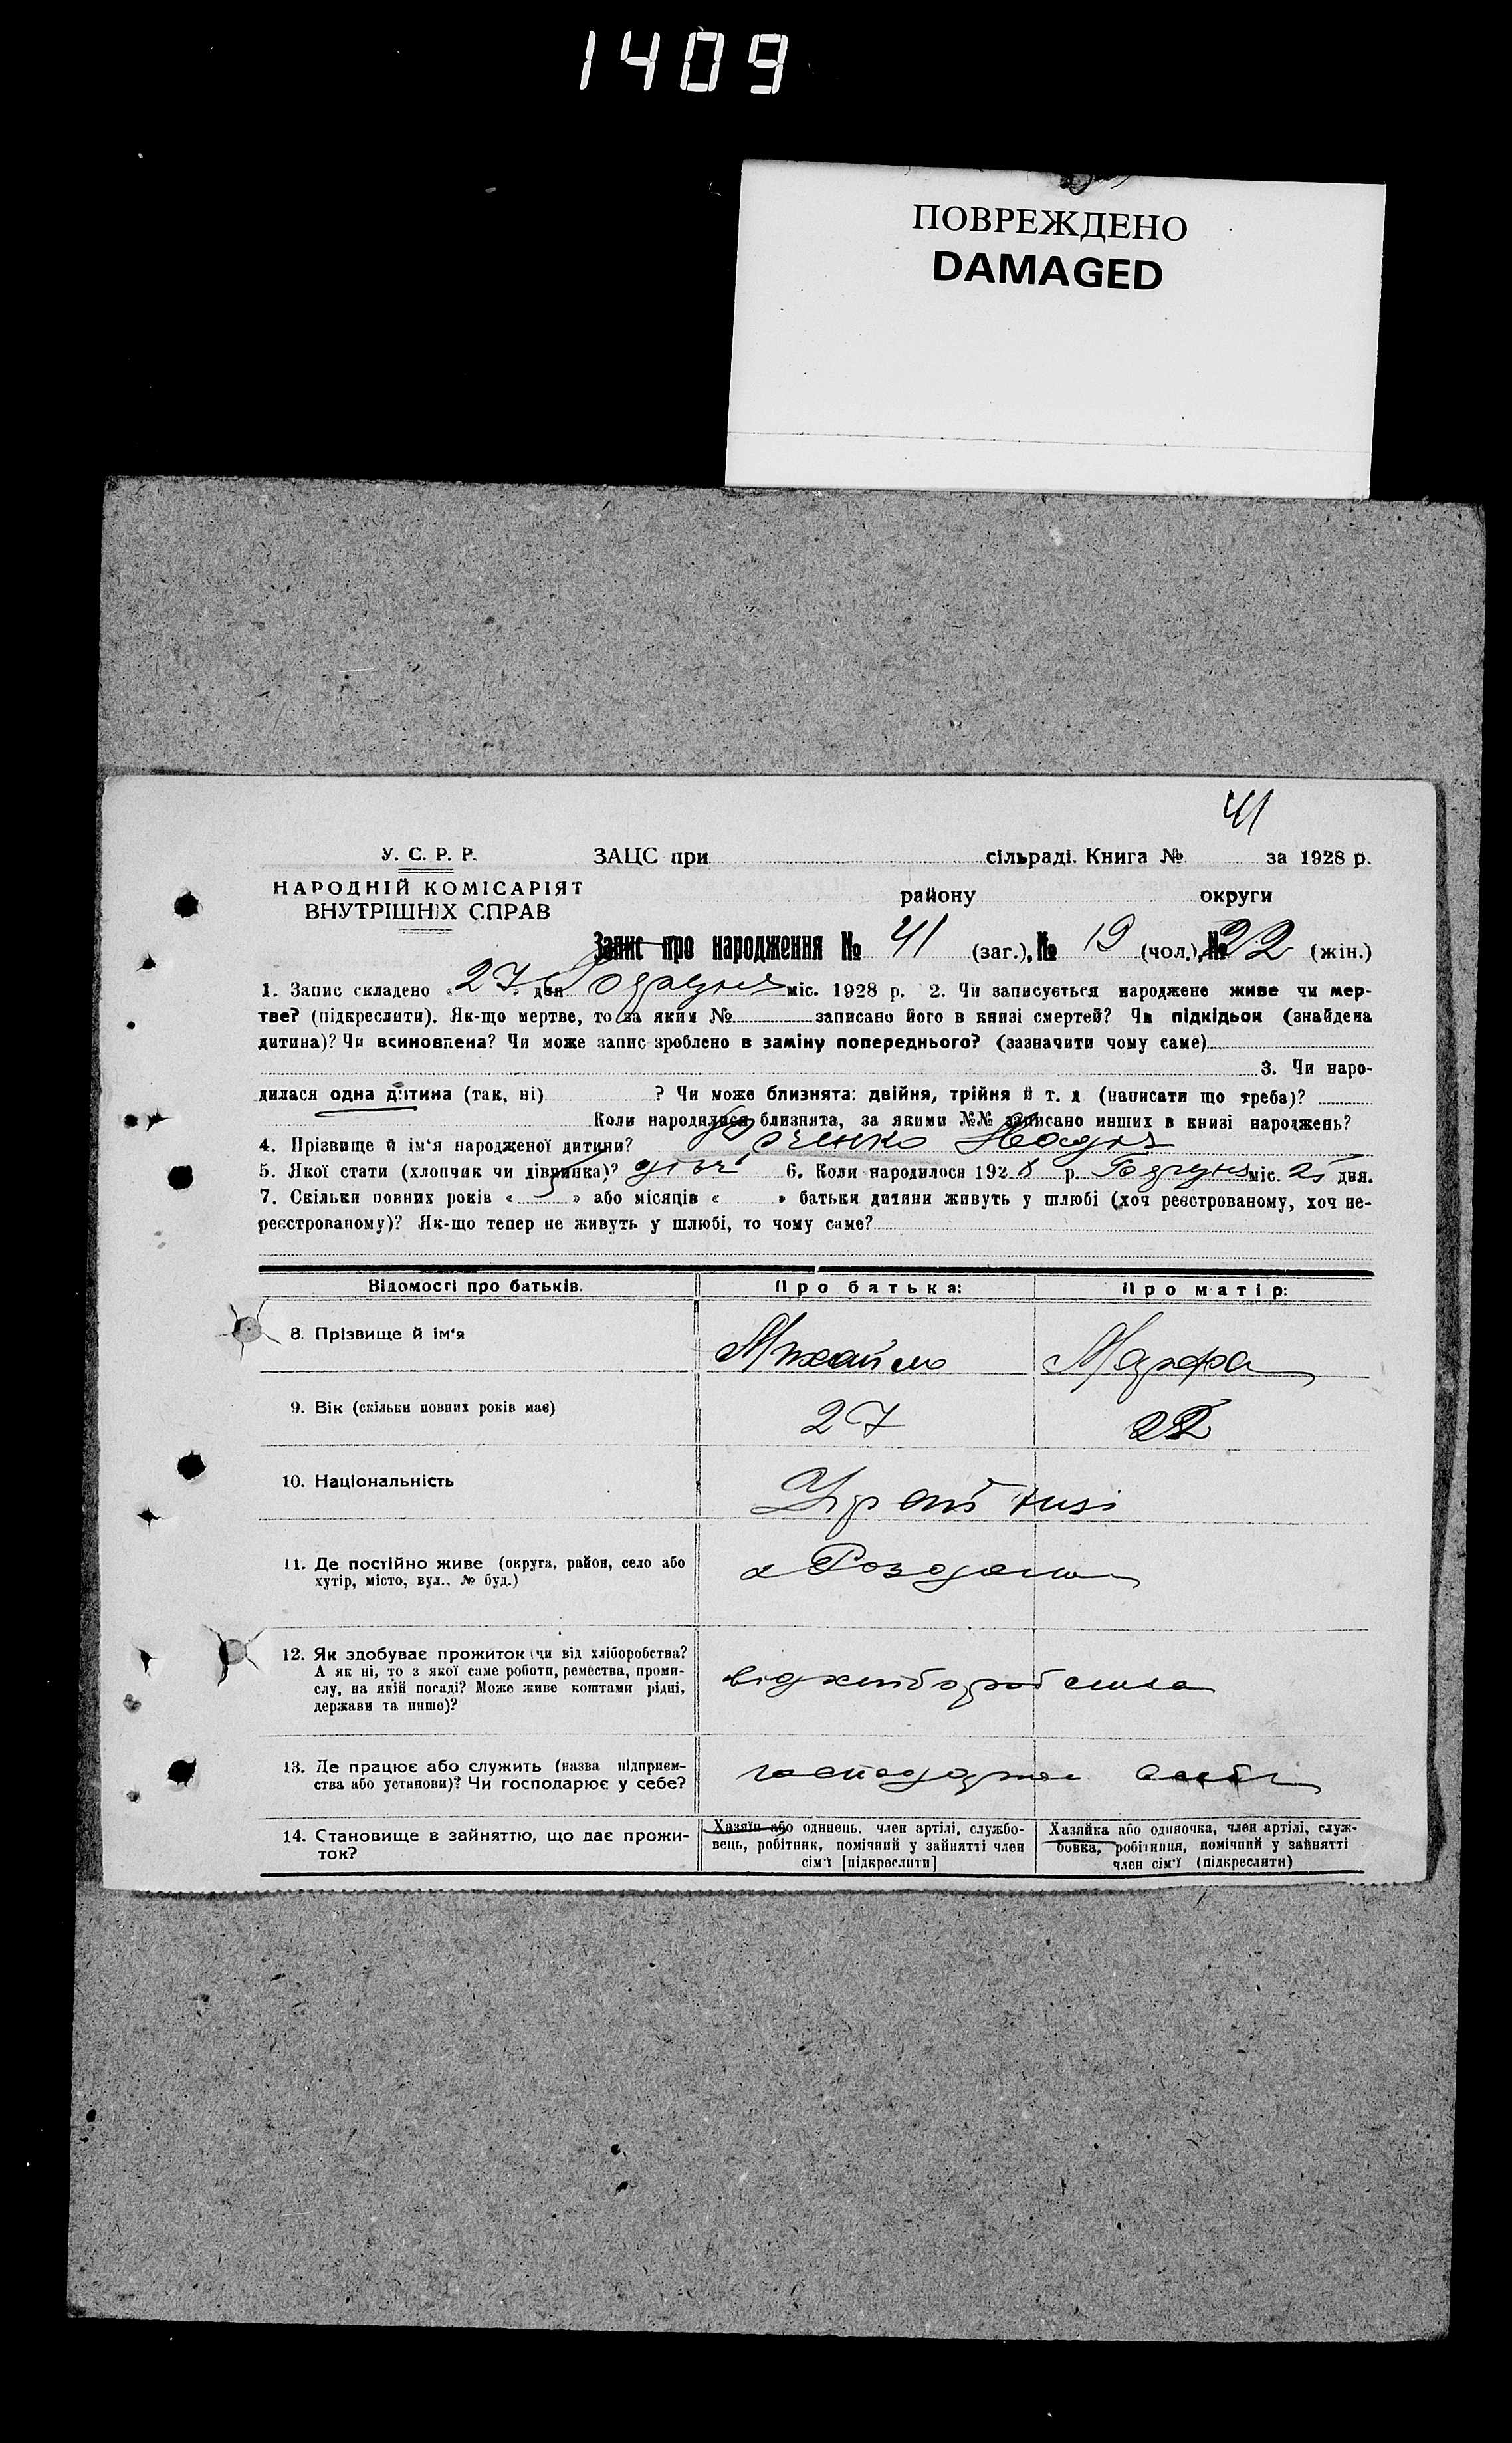 1409
ПОВРЕЖДЕНО
DAMAGED
41
У. С. Р. Р.
ЗАЦС при сільраді. Книга № за 1928 р.
НАРОДНІЙ КОМІСАРІЯТ
ВНУТРІШНІХ СПРАВ
району округи
Запис про народження № 41 (заг.), № 19 (чол.), № 22 (жін.)
1. Запис складено «27» дня міс. 1928 р. 2. Чи записується народжене живе чи мер-
тве? (підкреслити). Як-що мертве, то за яким № записано його в книзі смертей? Чи підкідьок (знайдена
дитина)? Чи всиновлена? Чи може запис зроблено в заміну попереднього? (зазначити чому саме)
3. Чи наро-
дилася одна дитина (так, ні) ? Чи може близнята: двійня, трійня й т. д (написати що треба)?
Коли народилися близнята, за якими №№ записано инших в книзі народжень?
4. Прізвище й ім'я народженої дитини? Надія
5. Якої стати (хлопчик чи дівчинка)? дівч 6. Коли народилося 1928 р. міс. 25 дня.
7. Скільки повних років « » або місяців « » батьки дитини живуть у шлюбі (хоч реєстрованому, хоч не-
реєстрованому)? Як-що тепер не живуть у шлюбі, то чому саме?
Відомості про батьків. Про батька: Про матір:
8. Прізвище й ім'я Михайло Марфа
9. Вік (скільки повних років має) 27 22
10. Національність
11. Де постійно живе (округа, район, село або
хутір, місто, вул., № буд.)
12. Як здобуває прожиток чи від хліборобства?
А як ні, то з якої саме роботи, ремества, проми-
слу, на якій посаді? Може живе коштами рідні,
держави та инше)?
від хліборобства
13. Де працює або служить (назва підприєм-
ства або установи)? Чи господарює у себе?
14. Становище в зайняттю, що дає прожи-
ток?
Хазяїн або одинець, член артілі, службо-
вець, робітник, помічний у зайнятті член
сім'ї [підкреслити]
Хазяйка або одиночка, член артілі, служ-
бовка, робітниця, помічний у зайнятті
член сім'ї (підкреслити)